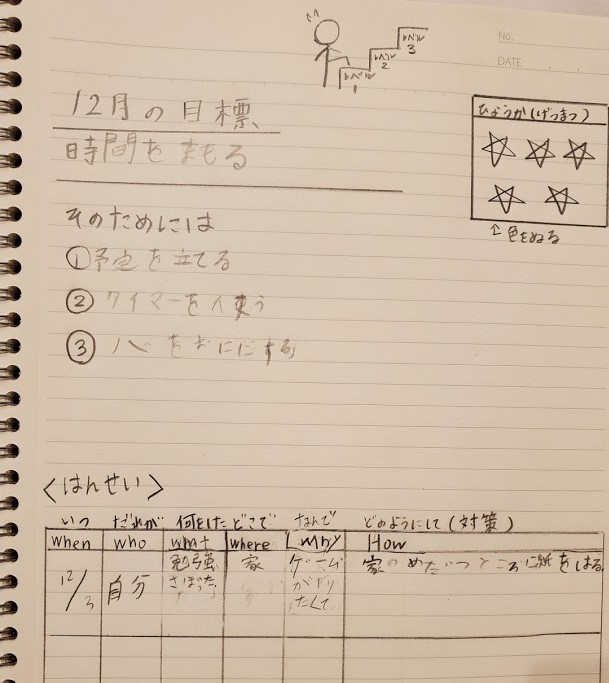 No.
DATE
レベル
1
レベル
2
レベル
3
12月の目標
時間をまもる
ひょうか(げつまつ)
↑色をぬる
そのためには
①予定を立てる
②タイマーを使う
③心をおににする
<はんせい>
いつ だれが 何をした どこで なんで どのようにして(対策)
when who what where why How
12/3 自分 勉強さぼった 家 ゲームがやりたくて 家のめだつところに紙をはる